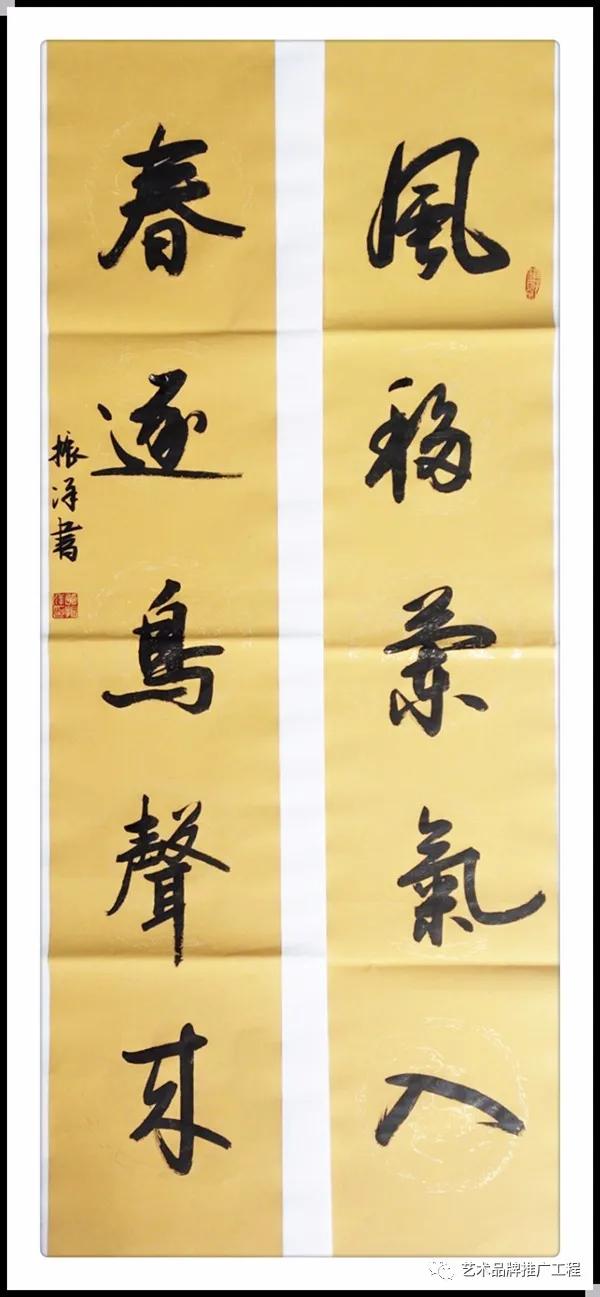 風移蘭氣入
春逐鳥聲来
振洋書
艺术品牌推广工程